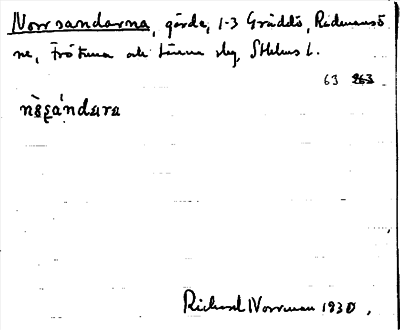 Norrsandarna, gärde, 1-3 Gräddö, Rådmansö
sn, Frötuna och Länna skg, Sthlms l.
63 263
nɷ̀ʂánda̤ra
Richard Norrman 1930.